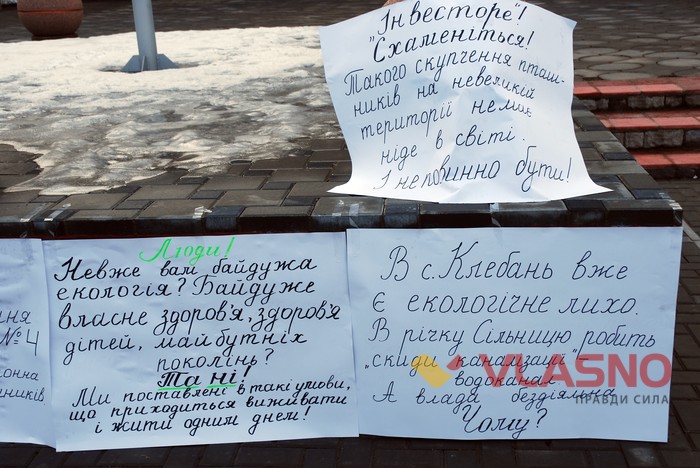 "Інвесторе"!
"Схаменіться!
Такого скупчення пташ-
ників на невеликій
території немає
ніде в світі.
І неповинно бути!
ння
№4
онна
ників
Люди!
Невже вам байдужа
екологія? Байдуже
власне здоров'я, здоров'я
дітей, майбутніх
поколінь?
Та ні!
Ми поставлені в такі умови,
що приходиться виживати
і жити одним днем!
В с. Клебань вже
є екологічне лихо.
В річку Сільницю робить
"скиди каналізації"
водоканал
А влада бездіяльна
Чому?
VLASNO
ПРАВДИ СИЛА